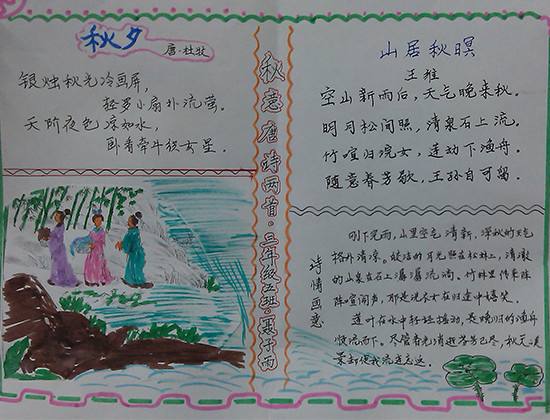 秋夕
唐·杜牧
银烛秋光冷画屏，
轻罗小扇扑流萤。
天阶夜色凉如水，
卧看牵牛织女星。
秋意唐诗两首·三年级五班·栗子雨
山居秋暝
王维
空山新雨后，天气晚来秋。
明月松间照，清泉石上流。
竹喧归浣女，莲动下渔舟。
随意春芳歇，王孙自可留。
诗情画意
刚下完雨，山里空气清新，深秋的天色
格外清凉。皎洁的月光照在松林上，清澈
的山泉在石上潺潺流淌，竹林里传来阵
阵喧闹声，那是洗衣女在归途中嬉笑。
莲叶在水中轻轻摇动，是晚归的渔舟
顺流而下。尽管春光消逝芳菲已尽，秋天美
景却使我流连忘返。